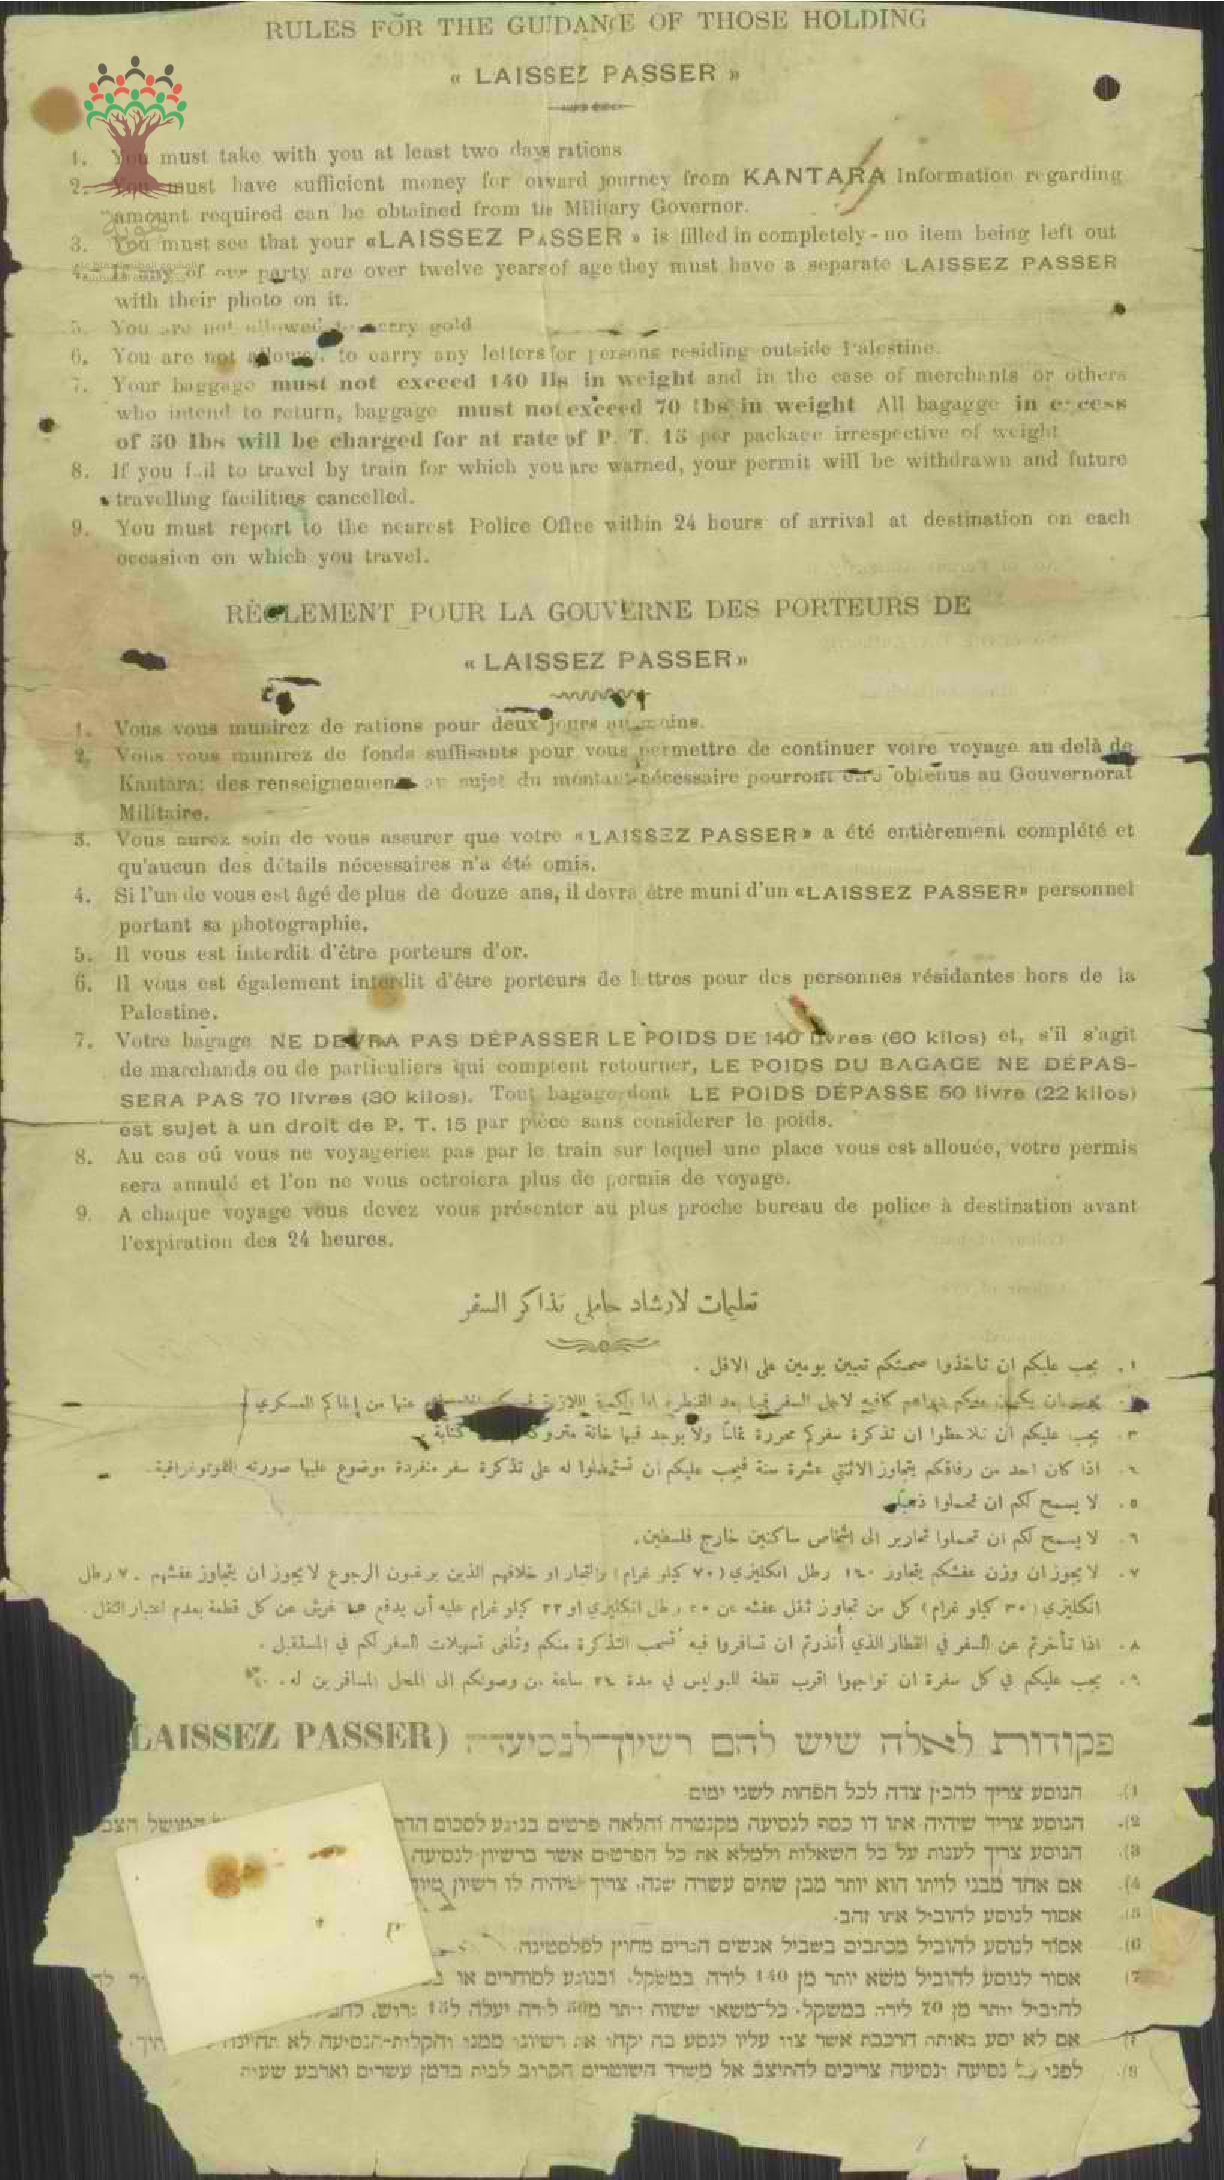 RULES FOR THE GUIDANCE OF THOSE HOLDING
« LAISSEZ PASSER »
1. You must take with you at least two days rations
2. You must have sufficient money for onward journey from KANTARA Information regarding
amount required can be obtained from the Military Governor.
3. You must see that your «LAISSEZ PASSER » is filled in completely - no item being left out
4. If any of our party are over twelve years of age they must have a separate LAISSEZ PASSER
with their photo on it.
5. You are not allowed to carry gold
6. You are not allowed to carry any letters for persons residing outside Palestine.
7. Your baggage must not exceed 140 lbs in weight and in the case of merchants or others
who intend to return, baggage must not exceed 70 lbs in weight All bagagge in excess
of 50 lbs will be charged for at rate of P. T. 15 per package irrespective of weight
8. If you fail to travel by train for which you are warned, your permit will be withdrawn and future
travelling facilities cancelled.
9. You must report to the nearest Police Office within 24 hours of arrival at destination on each
occasion on which you travel.
RÈGLEMENT POUR LA GOUVERNE DES PORTEURS DE
« LAISSEZ PASSER»
1. Vous vous munirez de rations pour deux jours au moins.
2. Vous vous munirez de fonds suffisants pour vous permettre de continuer votre voyage au delà de
Kantara; des renseignements au sujet du montant nécessaire pourront être obtenus au Gouvernorat
Militaire.
3. Vous aurez soin de vous assurer que votre «LAISSEZ PASSER» a été entièrement complété et
qu'aucun des détails nécessaires n'a été omis.
4. Si l'un de vous est âgé de plus de douze ans, il devra être muni d'un «LAISSEZ PASSER» personnel
portant sa photographie.
5. Il vous est interdit d'être porteurs d'or.
6. Il vous est également interdit d'être porteurs de lettres pour des personnes résidantes hors de la
Palestine.
7. Votre bagage NE DEVRA PAS DÉPASSER LE POIDS DE 140 livres (60 kilos) et, s'il s'agit
de marchands ou de particuliers qui comptent retourner, LE POIDS DU BAGAGE NE DÉPAS-
SERA PAS 70 livres (30 kilos). Tout bagage dont LE POIDS DÉPASSE 50 livre (22 kilos)
est sujet à un droit de P. T. 15 par pièce sans considerer le poids.
8. Au cas oú vous ne voyageriez pas par le train sur lequel une place vous est allouée, votre permis
sera annulé et l'on ne vous octroiera plus de permis de voyage.
9. A chaque voyage vous devez vous présenter au plus proche bureau de police à destination avant
l'expiration des 24 heures.
تعليمات لارشاد حاملى تذاكر السفر
١. يجب عليكم ان تأخذوا صحبتكم تعيين يومين على الاقل .
يكون معكم دراهم كافيه لاجل السفر فيما بعد القنطره اما الكمية اللازمة عنها من الحاكم العسكري
٣. يجب عليكم ان تلاحظوا ان تذكرة سفركم محررة تماماً ولا يوجد فيها خانة متروكة كتابة
٤. اذا كان احد من رفاقكم يتجاوز الاثنتي عشرة سنة فيجب عليكم ان تستحصلوا له على تذكرة سفر منفردة موضوع عليها صورته الفوتوغرافية.
٥. لا يسمح لكم ان تحملوا ذهباً
٦. لا يسمح لكم ان تحملوا تحارير الى اشخاص ساكنين خارج فلسطين.
٧. لا يجوز ان وزن عفشكم يتجاوز ١٤٠ رطل انكليزي (٧٠ كيلو غرام) والتجار او خلافهم الذين يرغبون الرجوع لا يجوز ان يتجاوز عفشهم ٧٠ رطل
انكليزي (٣٠ كيلو غرام) كل من تجاوز ثقل عفشه عن ٥٠ رطل انكليزي او ٢٢ كيلو غرام عليه أن يدفع ١٥ غرش عن كل قطعة بعدم اعتبار الثقل.
٨. اذا تأخرتم عن السفر في القطار الذي أنذرتم ان تسافروا فيه تسحب التذكرة منكم وتلغى تسهيلات السفر لكم في المستقبل .
٩. يجب عليكم في كل سفرة ان تواجهوا اقرب نقطة للبوليس في مدة ٢٤ ساعة من وصولكم الى المحل المسافرين له.
פקודות לאלה שיש להם רשיון־לנסיעה (LAISSEZ PASSER
1). הנוסע צריך להכין צדה לכל הפחות לשני ימים
2). הנוסע צריך שיהיה אתו די כסף לנסיעה מקנטרה והלאה פרטים בנוגע לסכום המושל הצבאי
3). הנוסע צריך לענות על כל השאלות ולמלא את כל הפרטים אשר ברשיון לנסיעה
4). אם אחד מבני לויתו הוא יותר מבן שתים עשרה שנה, צריך שיהיה לו רשיון
5). אסור לנוסע להוביל אתו זהב.
6). אסור לנוסע להוביל מכתבים בשביל אנשים הגרים מחוץ לפלסטינה.
7) אסור לנוסע להוביל משא יותר מן 140 לירה במשקל, ובנוגע לסוחרים או
להוביל יותר מן 70 לירה במשקל. כל־משאו ששוה יותר מ50 לירה יעלה ל15 גרוש,
אם לא יסע באותה הרכבת אשר צוו עליו לנסע בה יקחו את רשיונו ממנו והקלות־הנסיעה לא תהיינה
9). לפני כל נסיעה ונסיעה צריכים להתיצב אל משרד השוטרים הקרוב לבית בזמן עשרים וארבע שעות